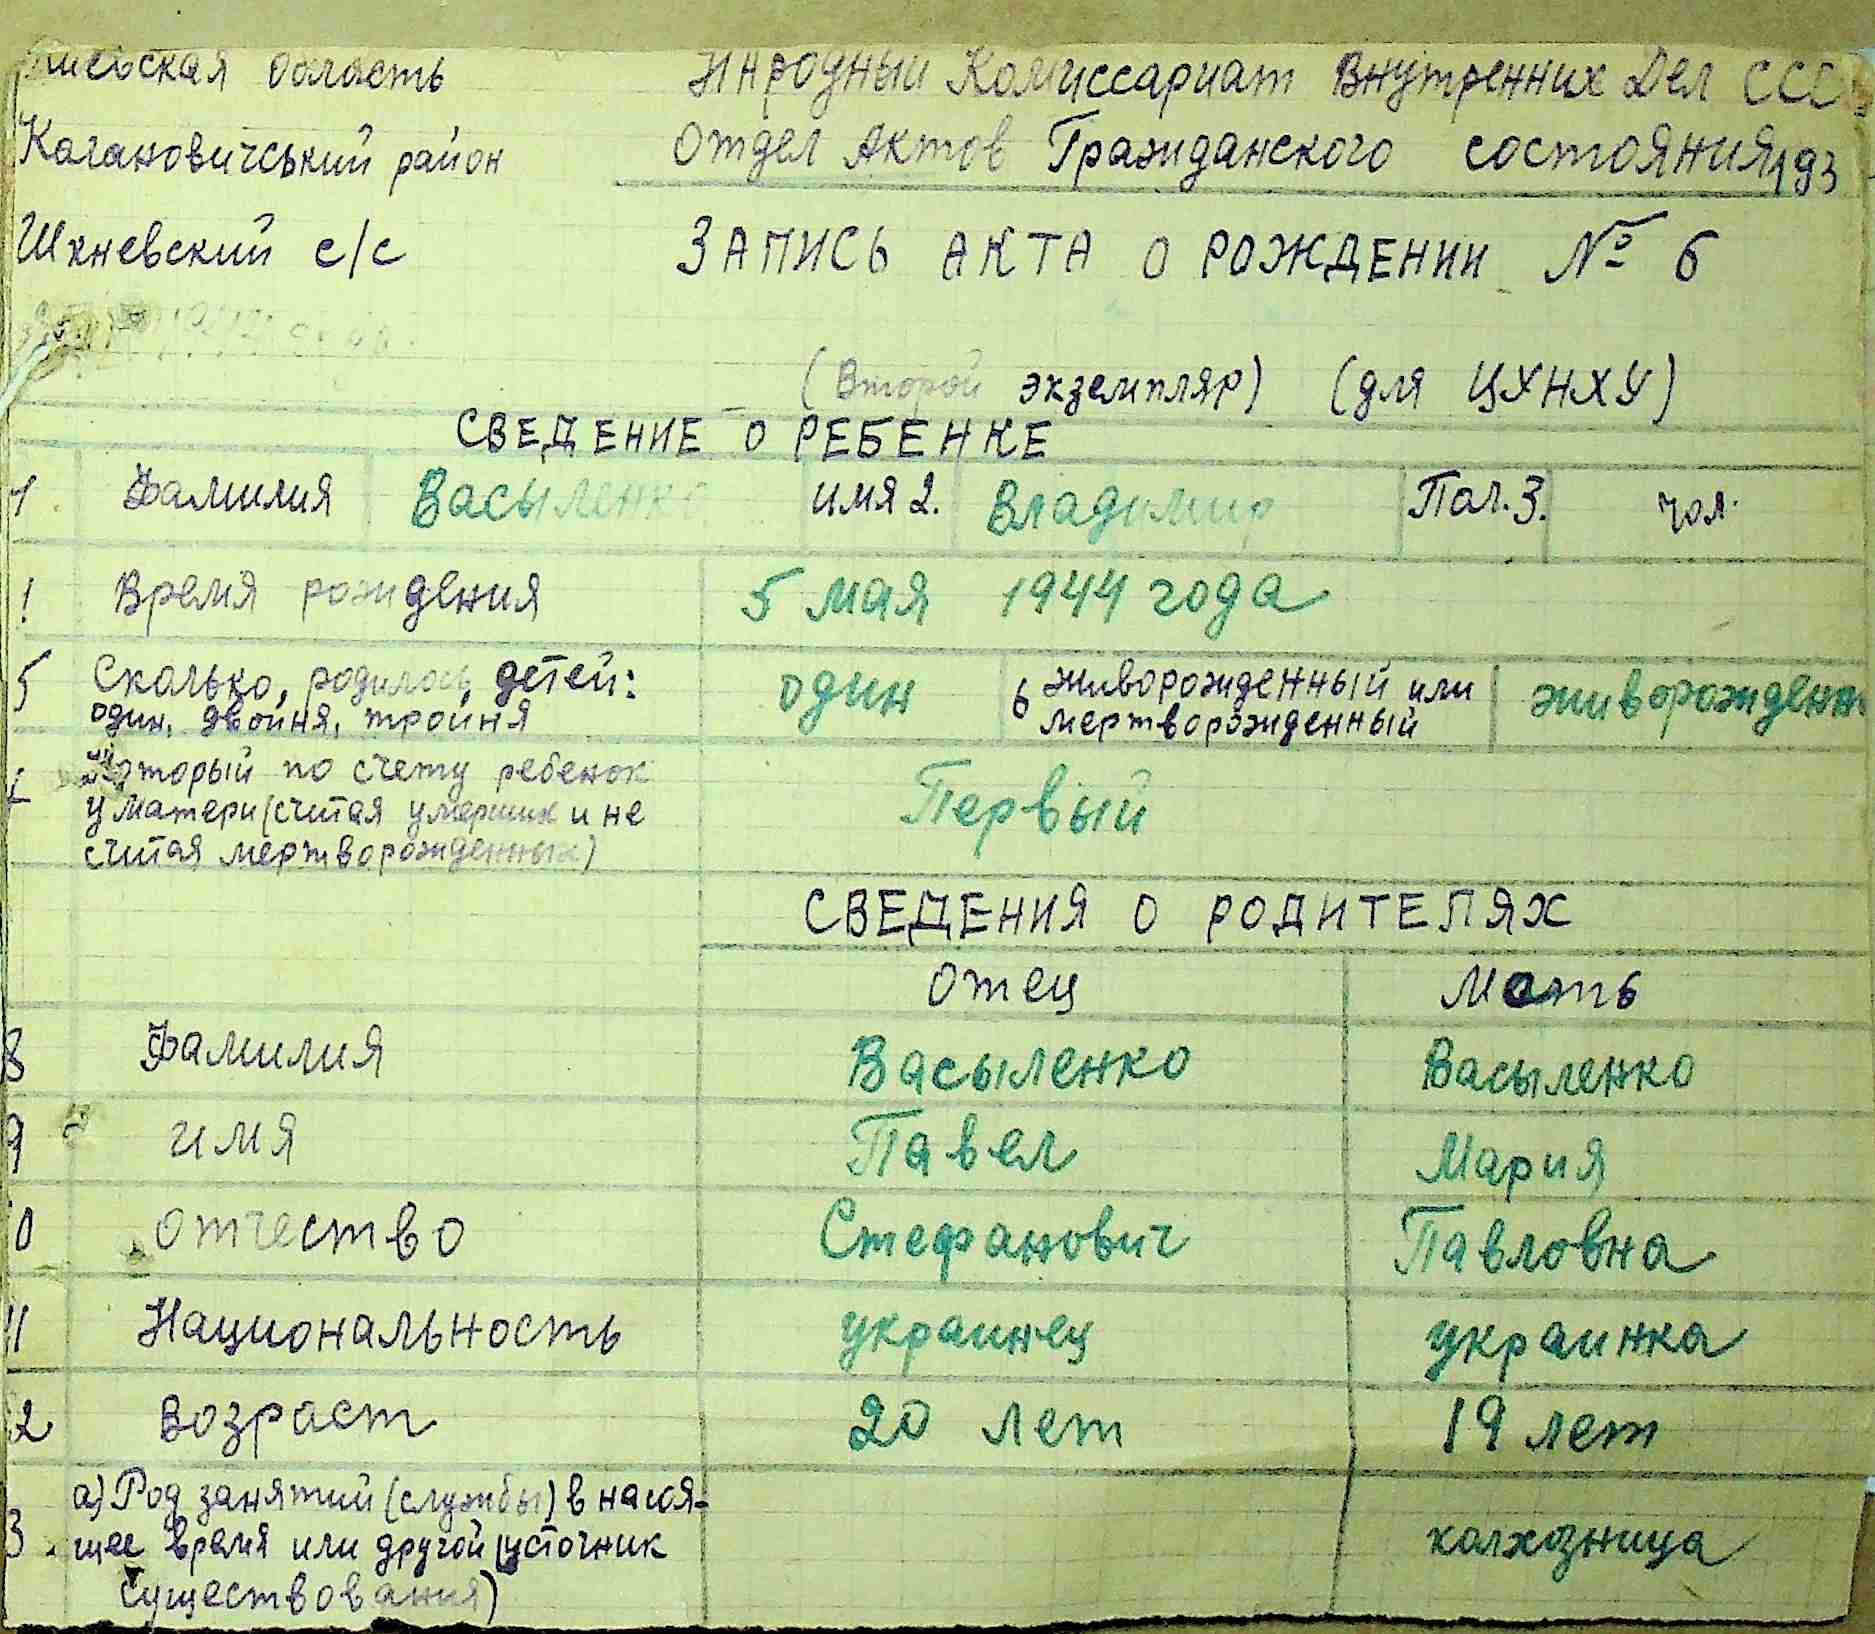 Киевская область
Народный Комиссариат Внутренних Дел СССР
Кагановичський район
Отдел Актов Гражданского состояния 193
Шкневский с/с
ЗАПИСЬ АКТА О РОЖДЕНИИ № 6
(Второй экземпляр) (для ЦХНХУ)
СВЕДЕНИЕ О РЕБЕНКЕ
1 Фамилия Васыленко имя 2. Владимир Пол. 3. чол.
Время рождения 5 мая 1944 года
5 Сколько, родилось детей: один, двойня, тройня
один
6 живорожденный или мертворожденный
живорожден
который по счету ребенок
у матери (считая умерших и не
считая мертворожденных)
Первый
СВЕДЕНИЯ О РОДИТЕЛЯХ
Отец Мать
8 Фамилия Васыленко Васыленко
9 имя Павел Мария
0 отчество Стефанович Павловна
11 Национальность украинец украинка
2 возраст 20 лет 19 лет
3 а) Род занятий (службы) в настоя-
щее время или другой источник
существования)
колхозница